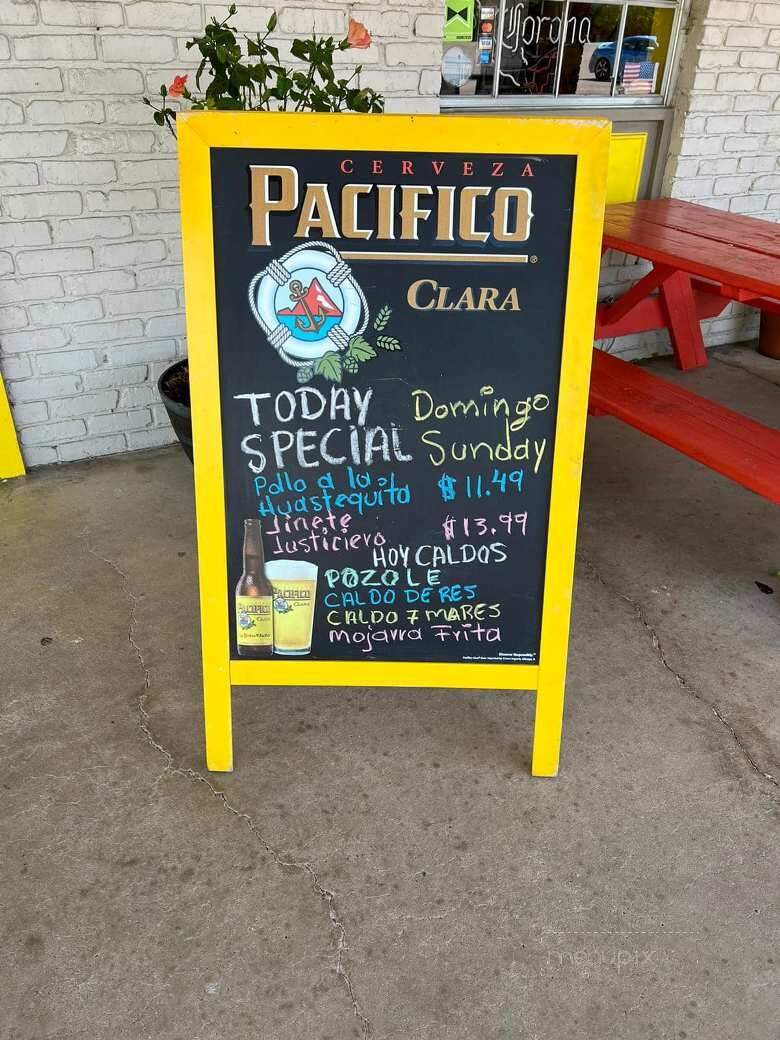 Corona
CERVEZA
PACIFICO
CLARA
TODAY Domingo
SPECIAL Sunday
Pollo a la
Huastequita $11.49
Jinete
Justiciero $13.99
HOY CALDOS
POZOLE
CALDO DE RES
CALDO 7 MARES
Mojarra Frita
PACIFICO
CLARA
PACIFICO
CLARA
menupix